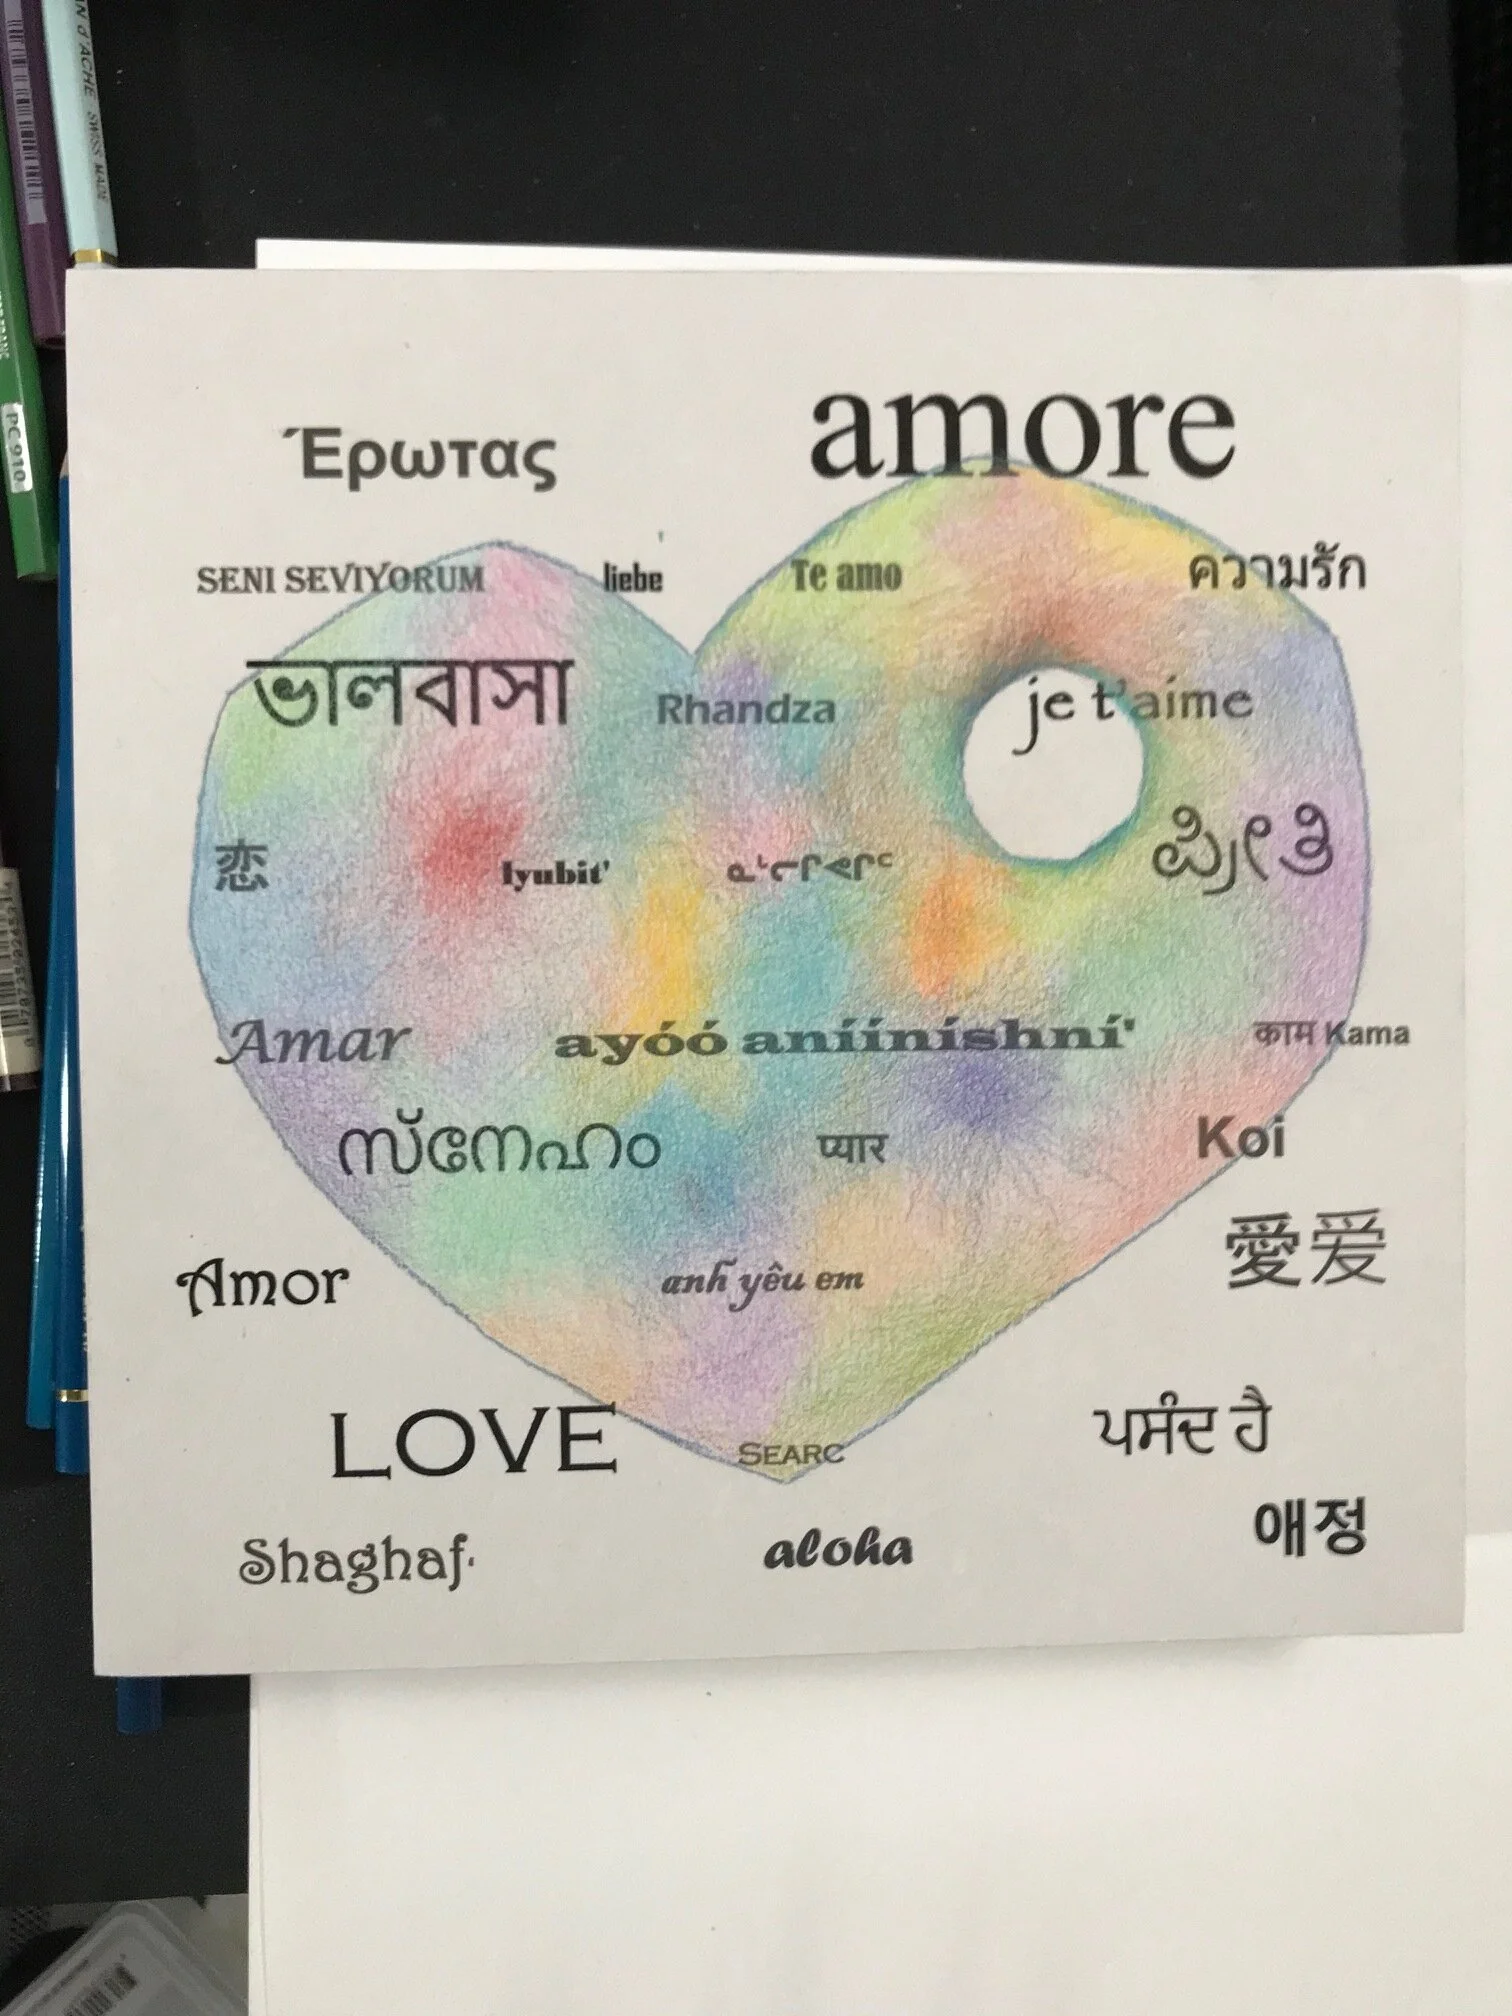 N d'ACHE SWISS MADE
PC 910
Έρωτας
amore
SENI SEVIYORUM
liebe
Te amo
ความรัก
ভালবাসা
Rhandza
je t'aime
恋
lyubit'
ಪ್ರೀತಿ
Amar
ayóó aníínishní'
काम Kama
സ്നേഹം
प्यार
Koi
愛爱
Amor
anh yêu em
LOVE
SEARC
ਪਸੰਦ ਹੈ
Shaghaf
aloha
애정